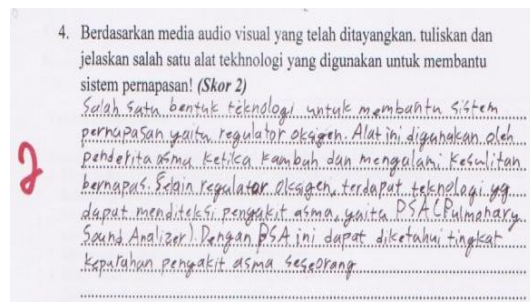 4. Berdasarkan media audio visual yang telah ditayangkan. tuliskan dan
jelaskan salah satu alat tekhnologi yang digunakan untuk membantu
sistem pernapasan! (Skor 2)
Salah satu bentuk teknologi untuk membantu sistem
pernapasan yaitu regulator oksigen. Alat ini digunakan oleh
penderita asma ketika kambuh dan mengalami kesulitan
bernapas. Selain regulator oksigen, terdapat teknologi yg
dapat menditeksi pengakit asma, yaitu PSA (Pulmonary
Sound Analizer). Dengan PSA ini dapat diketahui tingkat
keparahan penyakit asma seseorang
2